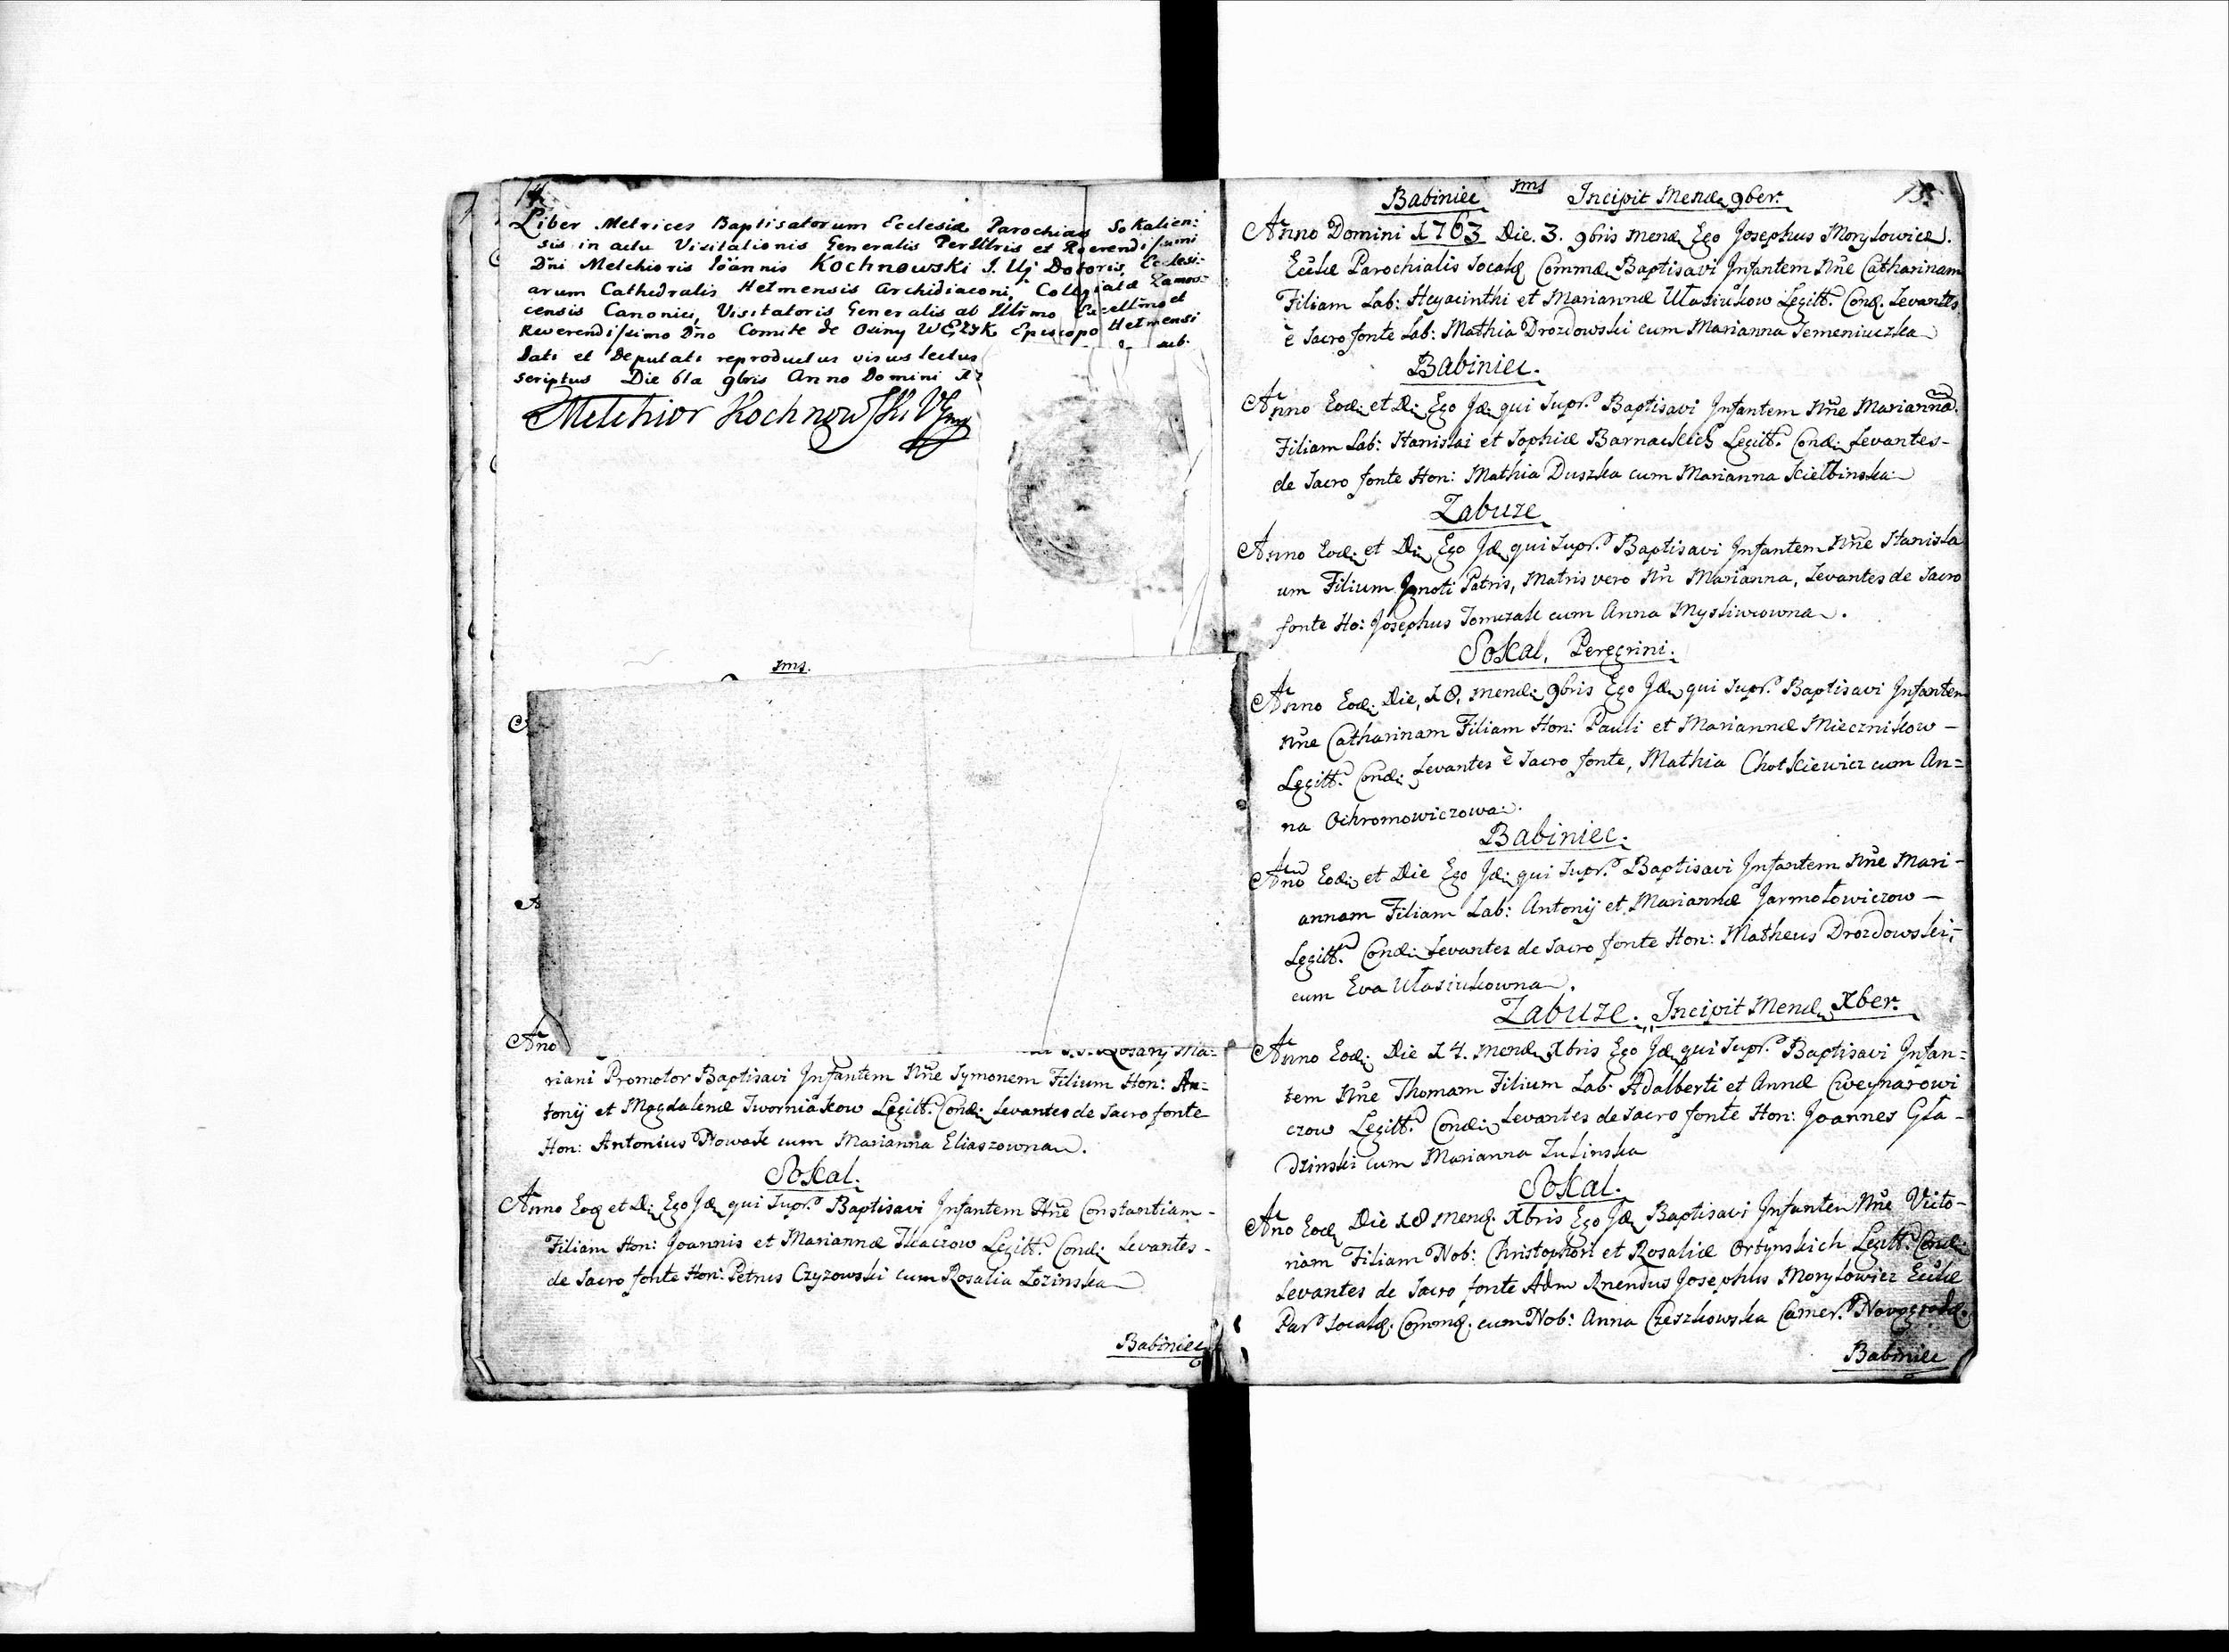 14.
Liber Metrices Baptisatorum Ecclesiæ Parochialis Sokalien:
sis in actu Visitationis Generalis Perillris et Reverendissimi
Dñi Melchioris Joannis Kochnowski J. Uj Doctoris, Ecclesi:
arum Cathedralis Helmensis Archidiaconi, Collegiatæ Zamos:
censis Canonici, Visitatoris Generalis ab Illmo Excellmo et
Reverendissimo Dño Comite de Osiny WĘŻYK Episcopo Helmensi
dati et Deputati reproductus visus lectus sub
scriptus Die 6ta 9bris Anno Domini
Melchior Kochnowski
1ms.
A
A
Año S.S. Rosarij Ma:
riani Promotor Baptisavi Infantem Nñe Symonem Filium Hon: An:
tonij et Magdalenæ Tworniakow Legitt. Cond: Levantes de Sacro fonte
Hon: Antonius Nowak cum Marianna Eliaszowna.
Sokal.
Anno Eod et D: Ego Id qui Supr. Baptisavi Infantem Nñe Constantiam -
Filiam Hon: Joannis et Mariannæ Tkaczow Legitt. Cond: Levantes -
de Sacro fonte Hon: Petrus Czyzowski cum Rosalia Łozinska
Babiniec
Babiniec 1ms Incipit Mend 9ber. 15.
Anno Domini 1763 Die. 3. 9bris mend Ego Josephus Morylowicz.
Eccliæ Parochialis Socald Commd Baptisavi Infantem Nñe Catharinam
Filiam Lab: Hyacinthi et Mariannæ Ułasiukow Legitt. Cond. Levantes
è Sacro fonte Lab: Mathia Drozdowski cum Marianna Semeniuczka
Babiniec.
Anno Eod: et D: Ego Id: qui Supr. Baptisavi Infantem Nñe Marianna.
Filiam Lab: Stanislai et Sophiæ Barnackich Legitt. Cond: Levantes -
de Sacro fonte Hon: Mathia Duszka cum Marianna Kiełbinska
Zabuze
Anno Eod: et Di: Ego Id qui Supr. Baptisavi Infantem Nñe Stanisla
um Filium Ignoti Patris, Matris vero Nñ Marianna, Levantes de Sacro
fonte Ho: Josephus Tomczak cum Anna Mysliwcowna.
Sokal, Peregrini.
Anno Eod: Die, 18, mend: 9bris Ego Id qui Supr. Baptisavi Infantem
Nñe Catharinam Filiam Hon: Pauli et Mariannæ Miecznikow -
Legitt. Cond: Levantes è Sacro fonte, Mathia Chotkiewicz cum An=
na Ochromowiczowa.
Babiniec.
Año Eod: et Die Ego Id: qui Supr. Baptisavi Infantem Nñe Mari -
annam Filiam Lab: Antonij et Mariannæ Jarmołowiczow -
Legitt. Cond: Levantes de Sacro fonte Hon: Matheus Drozdowski,
cum Eva Ułasiukowna.
Zabuze. Incipit Mend Xber.
Anno Eod: Die 14. mend Xbris Ego Id qui Supr. Baptisavi Infan=
tem Nñe Thomam Filium Lab: Adalberti et Annæ Cweynarowi
czow Legitt. Cond: Levantes de Sacro fonte Hon: Joannes Gła -
dzinski cum Marianna Zulinska
Sokal.
Año Eod Die 18 Mend. Xbris Ego Id Baptisavi Infantem Nñe Victo-
riam Filiam Nob: Christophori et Rosaliæ Ortynskich Legitt. Cond:
Levantes de Sacro fonte Adm Rnendus Josephus Morylowicz Eccliæ
Par. Socald. Commd. cum Nob: Anna Czeszkowska Camer. Novogrod.
Babiniec